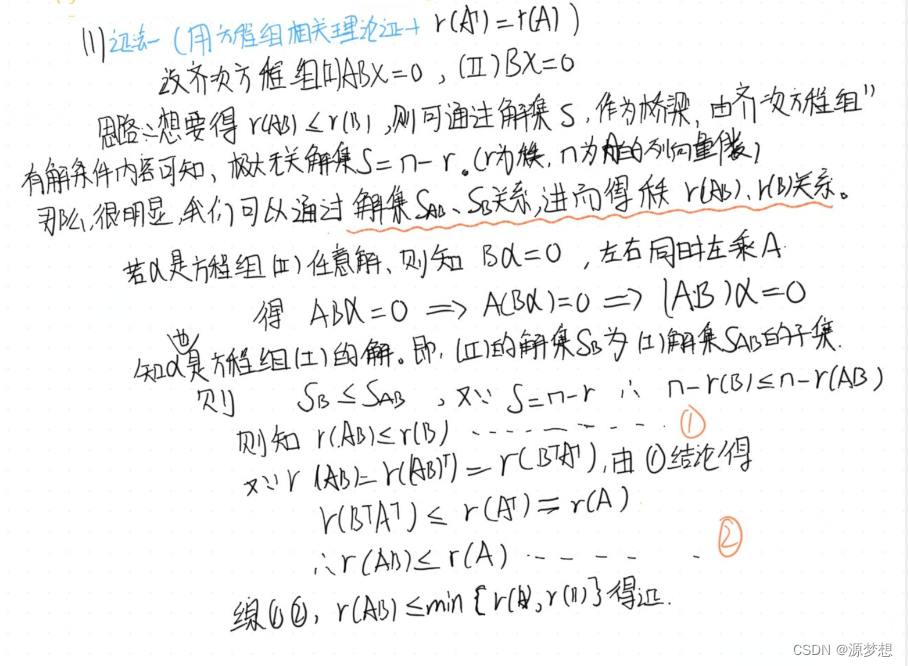 (1)证法一(用方程组相关理论证+ r(Aᵀ)=r(A))
设齐次方程组(I)ABX=0,(II)BX=0
思路:想要得 r(AB)≤r(B),则可通过解集S,作为桥梁,由齐次方程组"
有解条件内容可知,极大无关解集S=n-r。(r为秩,n为的列向量个数)
那么,很明显,我们可以通过解集SAB、SB关系,进而得秩 r(AB)、r(B)关系。
若α是方程组(II)任意解、则知 Bα=0,左右同时左乘A
得 ABα=0 ⟹ A(Bα)=0 ⟹ (AB)α=0
知α也是方程组(I)的解。即,(II)的解集SB为(I)解集SAB的子集.
则 SB≤SAB,又∵ S=n-r ∴ n-r(B)≤n-r(AB)
则知 r(AB)≤r(B) ---------- ①
又∵r(AB)=r((AB)ᵀ)=r(BᵀAᵀ),由①结论得
r(BᵀAᵀ)≤r(Aᵀ)=r(A)
∴r(AB)≤r(A) ----- ②
综①②,r(AB)≤min{r(A),r(B)}得证.
CSDN @源梦想